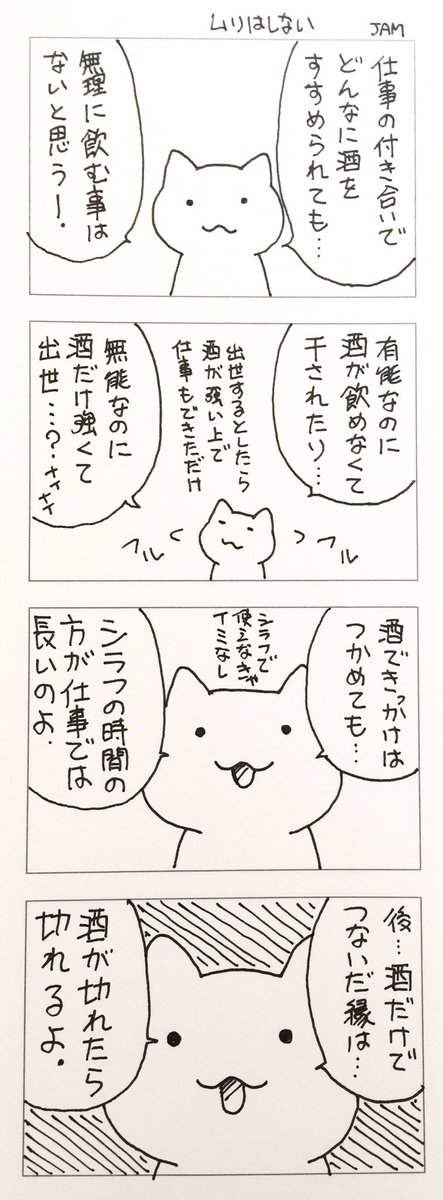 ムリはしない
JAM
仕事の付き合いで
どんなに酒を
すすめられても…
無理に飲む事は
ないと思うー.
有能なのに
酒が飲めなくて
干されたり…
出世するとしたら
酒が強い上で
仕事もできただけ
無能なのに
酒だけ強くて
出世…?ナイナイ
フル
フル
酒できっかけは
つかめても…
シラフで
使えなきゃ
イミなし
シラフの時間の
方が仕事では
長いのよ.
後…酒だけで
つないだ縁は…
酒が切れたら
切れるよ.